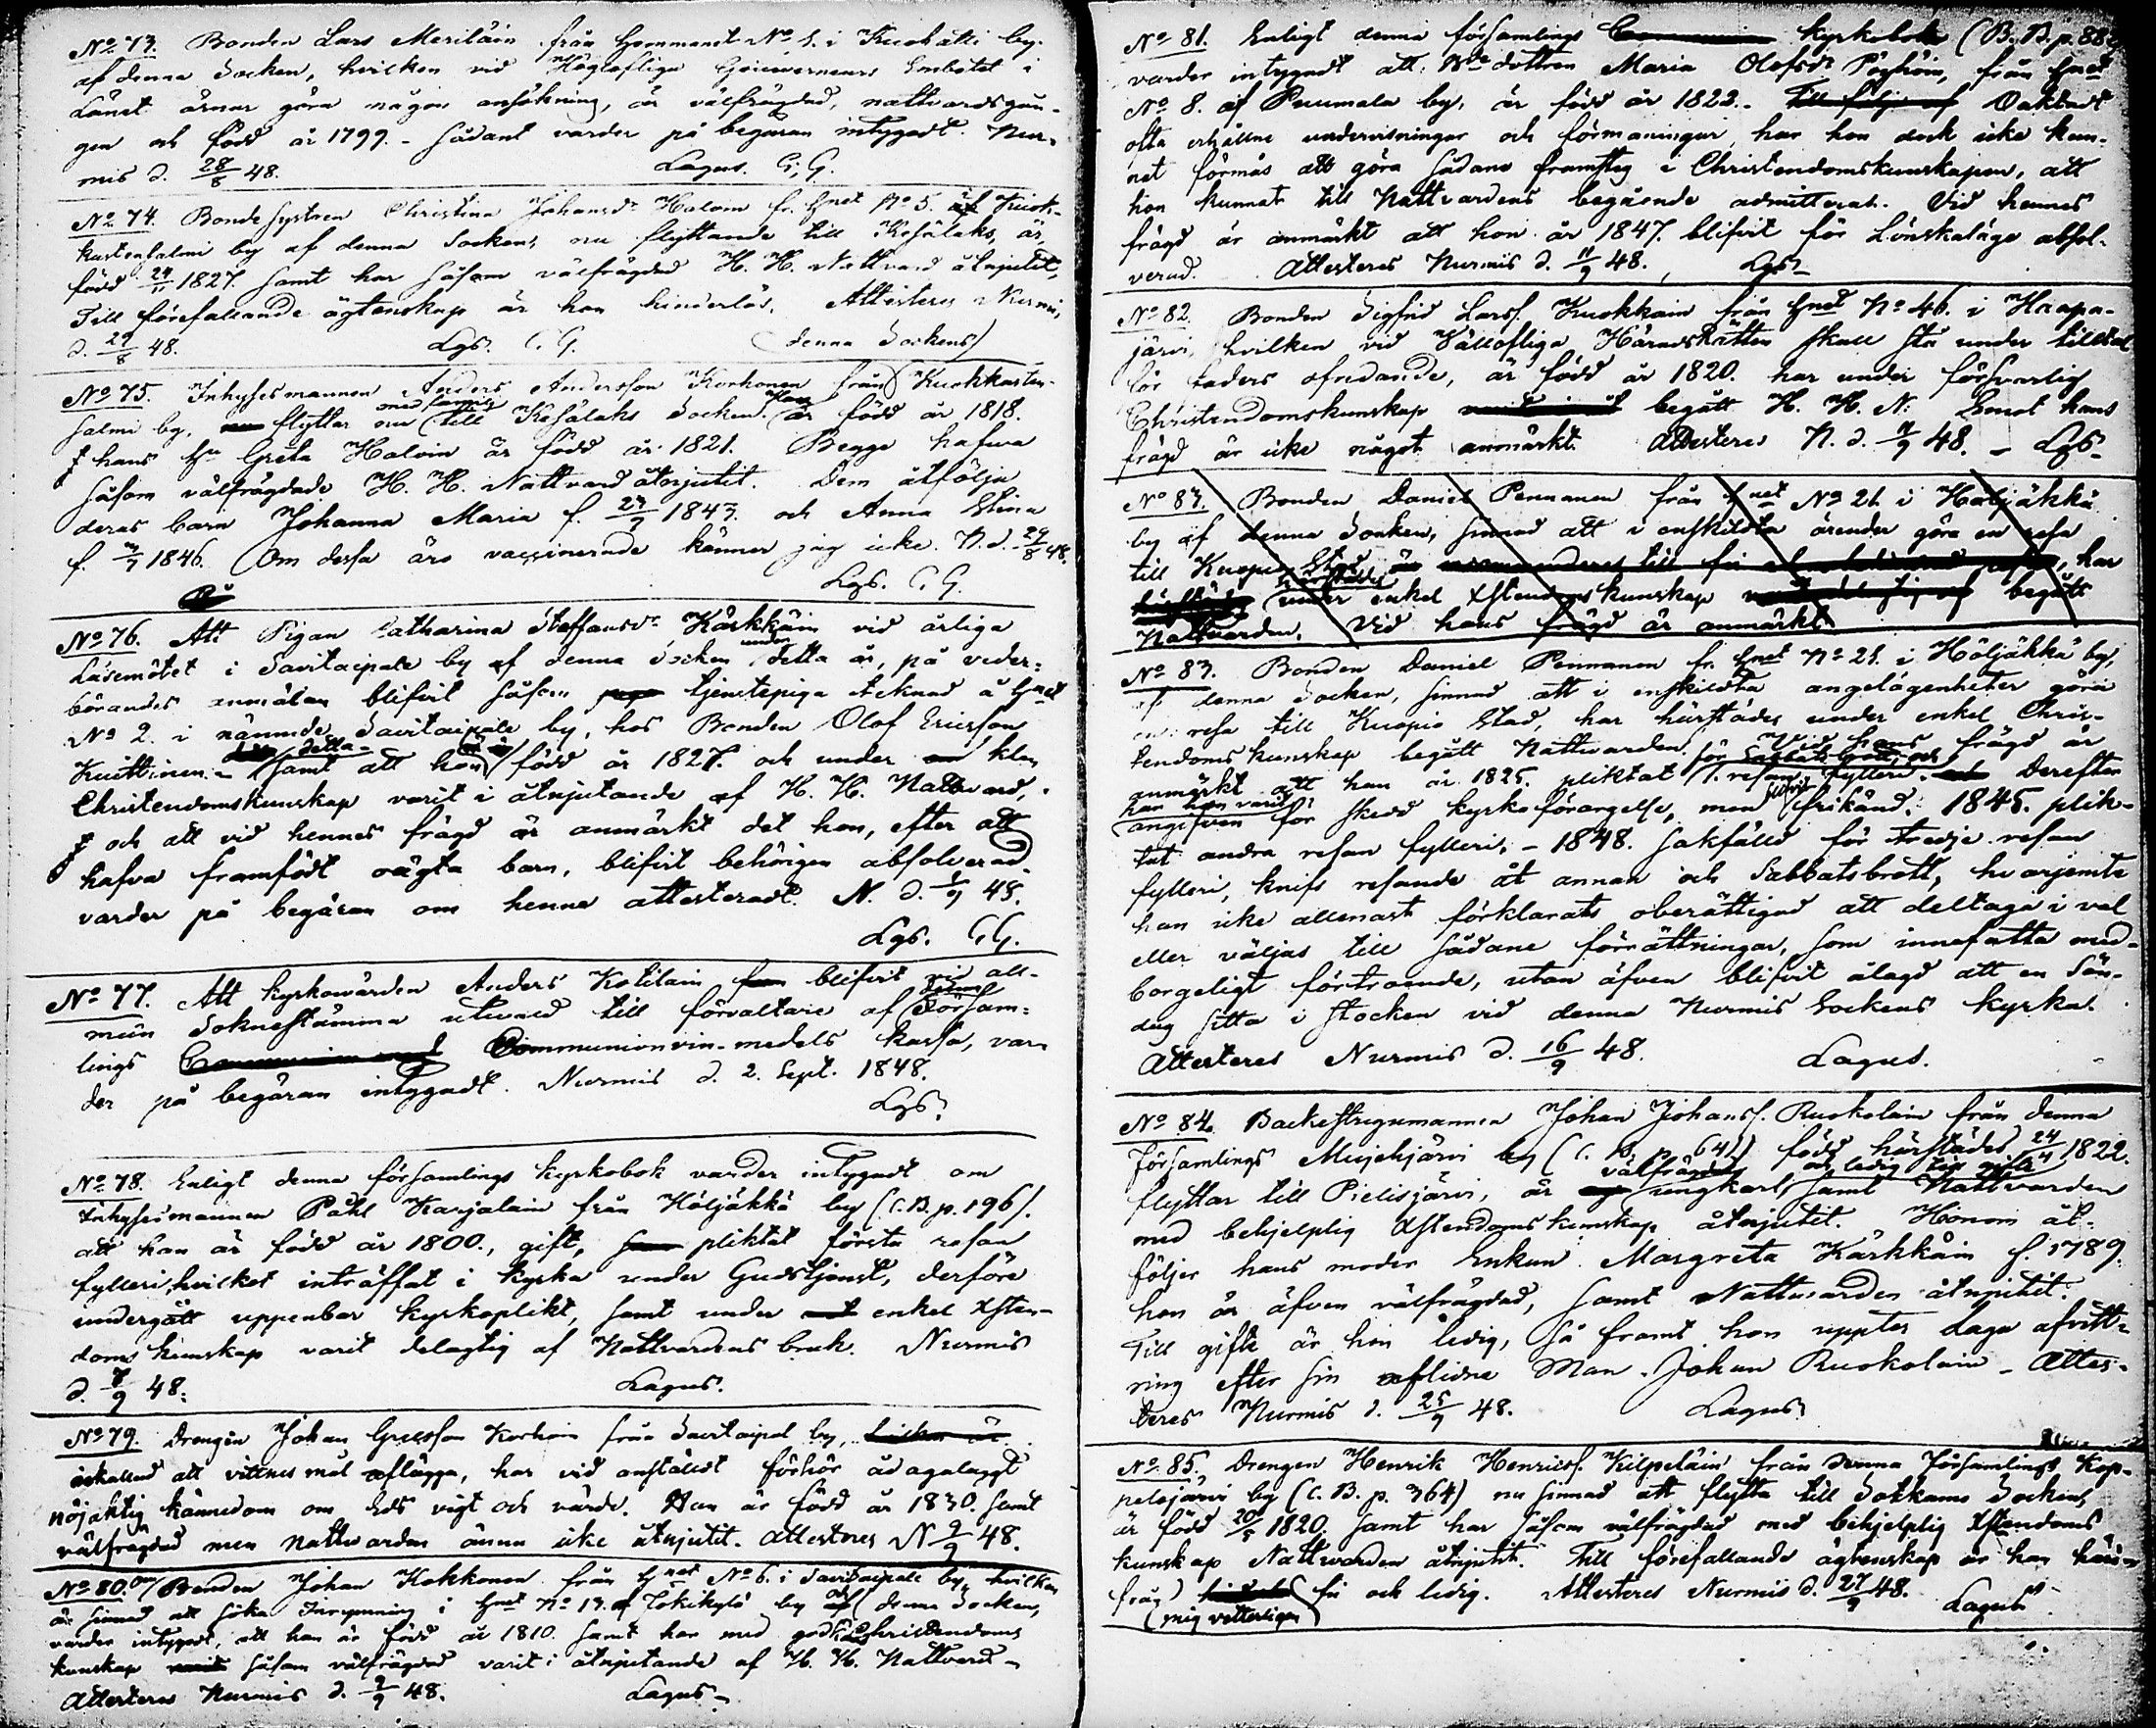 No 73. Bonden Lars Meriläin från Hemmant. No 1. i Kuohatti by.
af denna Socken, hvilken vid Höglofliga Gouverneurs Embetet i
Länet ärnar göra någon ansökning, är välfrägdad, nattvardsgån-
gen och född år 1799. - Sådant varder på begäran intygadt. Nur-
mis d. 28/8 48. Lagus. C. G.
No 74. Bondesystren Christina Johansdr Haloin fr. Hmet No 5. af Kuok-
kastensalmi by af denna Socken, nu flyttande till Kesälaks, är
född 24/11 1827. samt har såsom välfrägdad H. H. Nattvard åtnjutit,
Till förefallande ägtenskap är hon hinderlös. Attesteras Nurmis,
d. 29/8 48. Lgs. C. G. (denna Sockens)
No 75. Inhysesmannen Anders Andersson Korhonen från Kuokkasten-
salmi by, flyttar nu med familj till Kesälaks Socken. Han är född år 1818.
hans Hu Greta Haloin är född år 1821. Begge hafva
såsom välfrägdade H. H. Nattvard åtnjutit. Dem åtfölja
deras barn Johanna Maria f. 23/7 1843. och Anna Stina
f. 1846. (Om dessa äro vaccinerade känner jag icke. N. d. 29/8 48.
Lgs. C. G.
No 76. Att Pigan Catharina Staffansdr Kärkkäin vid årliga
Läsemötet i Savitaipale by af denna Socken under detta år, på veder-
börandes anmälan blifvit såsom tjenstepiga tecknad å Hmet
No 2. i nämnde Savitaipale by, hos Bonden Olof Ericsson
Kuittinen - samt att hon är född år 1827. och under klen
Christendomskunskap varit i åtnjutande af H. H. Nattvard,
och att vid hennes frägd är anmärkt det hon, efter att
hafva framfödt oägta barn, blifvit behörigen absolverad.
varder på begäran om henne attesteradt. N. d. 1/9 48.
Lgs. C. G.
No 77. Att Kyrkovärden Anders Kotilain blifvit vid all-
män Sokne stämma utvald till förvaltare af denna Församl-
lings Communionvin-medels kassa, var-
der på begäran intygadt. Nurmis d. 2. Sept. 1848.
Lgs.
No 78. Enligt denna församlings Kyrkobok varder intygadt om
Inhysesmannen Påhl Karjalain från Höljäkkä by (C. B. p. 196).
att han är född år 1800., gift, pliktat första resan
fylleri, hvilket inträffat i Kyrka under Gudstjenst, derföre
undergått uppenbar kyrkoplikt, samt under enkel Xsten-
doms kunskap varit delagtig af Nattvardens bruk. Nurmis
d. 7/9 48. Lagus.
No 79. Drengen Johan Grelsson Korhoin från Savitaipal by,
inkallad att vittnesmål aflägga, har vid anstäldt förhör ådagalaggt
nöjaktig kännedom om Eds vigt och värde. Han är född år 1830. samt
välfrägdad men nattvarden ännu icke åtnjutit. Attesteras N 9/9 48.
No 80. Om Bonden Johan Kokkonen från Hmet No 6. i Savitaipale by, hvilken
är sinnad att söka Inrymning i Hmet No 13. af Jokikylä by af denna Socken,
varder intygadt, att han är född år 1810. samt har med god Christendoms
kunskap såsom välfrägdad varit i åtnjutande af H. H. Nattvard -
Attesteras Nurmis d. 9/9 48. Lagus -
No 81. Enligt denna församlings Kyrkobok (B. B. p. 882
varder intygadt att Bdedottren Maria Olofsdr Pöyhöin, från Hmet
No 8. af Puumala by, är född år 1822. - Till följe af Oaktadt
ofta erhållne undervisningar och förmaningar, har hon dock icke kun-
nat förmås att göra sådane framsteg i Christendomskunskapen, att
hon kunnat till Nattvardens begående admitteras. Vid hennes
frägd är anmärkt att hon år 1847. blifvit för Lönskaläge absol-
verad. Attesteras Nurmis d. 11/9 48. Lgs.
No 82. Bonden Sigfrid Larss. Kuokkain från Hmet No 46. i Haapa-
järvi, hvilken vid Vällofliga Häradsrätten skall stå under tilltal
för faders ofredande, är född år 1820. har under försvarlig
Christendomskunskap begått H. H. N. Emot hans
frägd är icke något anmärkt. Attesteras N. d. 11/9 48. - Lgs -
No 83. Bonden Daniel Pennanen från Hmet No 21 i Höljäkkä
by af denna Socken, sinnad att i enskildta ärender göra en resa
till Kuopio Stad, har
härstädes under enkel Xstendomskunskap begått
Nattvarden. Vid hans frägd är anmärkt
No 83. Bonden Daniel Pennanen fr. Hmet No 21. i Höljäkkä by,
af denna Socken, sinnad att i enskildta angelägenheter göra
en resa till Kuopio Stad, har härstädes under enkel Chris-
tendomskunskap begått Nattvarden. Vid hans frägd är
anmärkt att han år 1825. pliktat för Sabbatsbrott och 1. resan fylleri. Derefter
har han varit angifven för skedd kyrkoförargelse, men blifvit frikänd. 1845. plik-
tat andra resan fylleri, - 1848. sakfälld för tredje resan
fylleri, knifs resande åt annan och Sabbatsbrott, hvarjemte
han icke allenast förklarats oberättigad att deltaga i val
eller väljas till sådane förrättningar, som innefatta med-
borgerligt förtroende, utan äfven blifvit ålagd att en Sön-
dag sitta i Stocken vid denna Nurmis Sockens kyrka.
Attesteras Nurmis d. 16/9 48. Lagus.
No 84. Backestugumannen Johan Johanss. Ruokolain från denna
Församlings Mujejärvi by (C. B. p. 641) född härstädes 24/4 1822.
flyttar till Pielisjärvi, är välfrägdad ungkarl, och ledig till gifte samt Nattvarden
med behjelplig Xstendomskunskap åtnjutit. Honom åt-
följer hans moder Enkan Margreta Kärkkäin f. 1789.
hon är äfven välfrägdad, samt Nattvarden åtnjutit.
Till gifte är hon ledig, så framt hon uppter laga afvitt-
ring efter sin aflidne Man Johan Ruokolain - Attes-
teras Nurmis d. 25/9 48. Lagus
No 85. Drengen Henrik Henrikss. Kilpeläin från denna Församlings Kop-
pelojärvi by (C. B. p. 364) nu sinnad att flytta till Sotkamo Socken,
är född 20/5 1820. samt har såsom välfrägdad med behjelplig Xstendoms
kunskap Nattvarden åtnjutit. Till förefallande ägtenskap är han här-
ifrån (mig vetterligen) fri och ledig. Attesteras Nurmis d. 27/9 48. Lagus